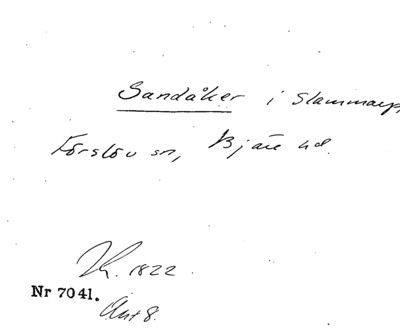 Sandåker i Slammarp,
Förslöv sn, Bjäre hd.
1822
Nr 7041.